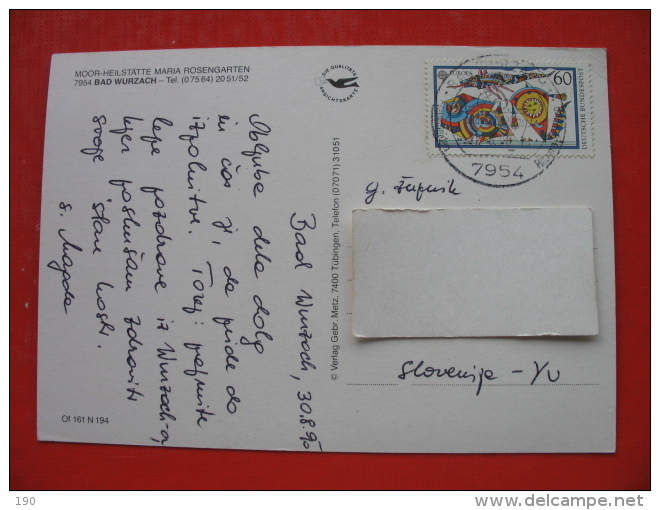 MOOR-HEILSTÄTTE MARIA ROSENGARTEN
7954 BAD WURZACH – Tel. (0 75 64) 20 51/52
DIE QUALITÄTS
ANSICHTSKARTE
EUROPA
60
DEUTSCHE BUNDESPOST
7954
Bad Wurzach, 30.8.90
Obljuba dela dolg
in čas je, da pride do
izpolnitve. Torej: prejmite
lepe pozdrave iz Wurzach-a,
kjer poskušam zdraviti
svoje stare kosti.
s. Magda
© Verlag Gebr. Metz, 7400 Tübingen, Telefon (07071) 31051
g. župnik
Slovenija - YU
Of 161 N 194
190
delcampe.net